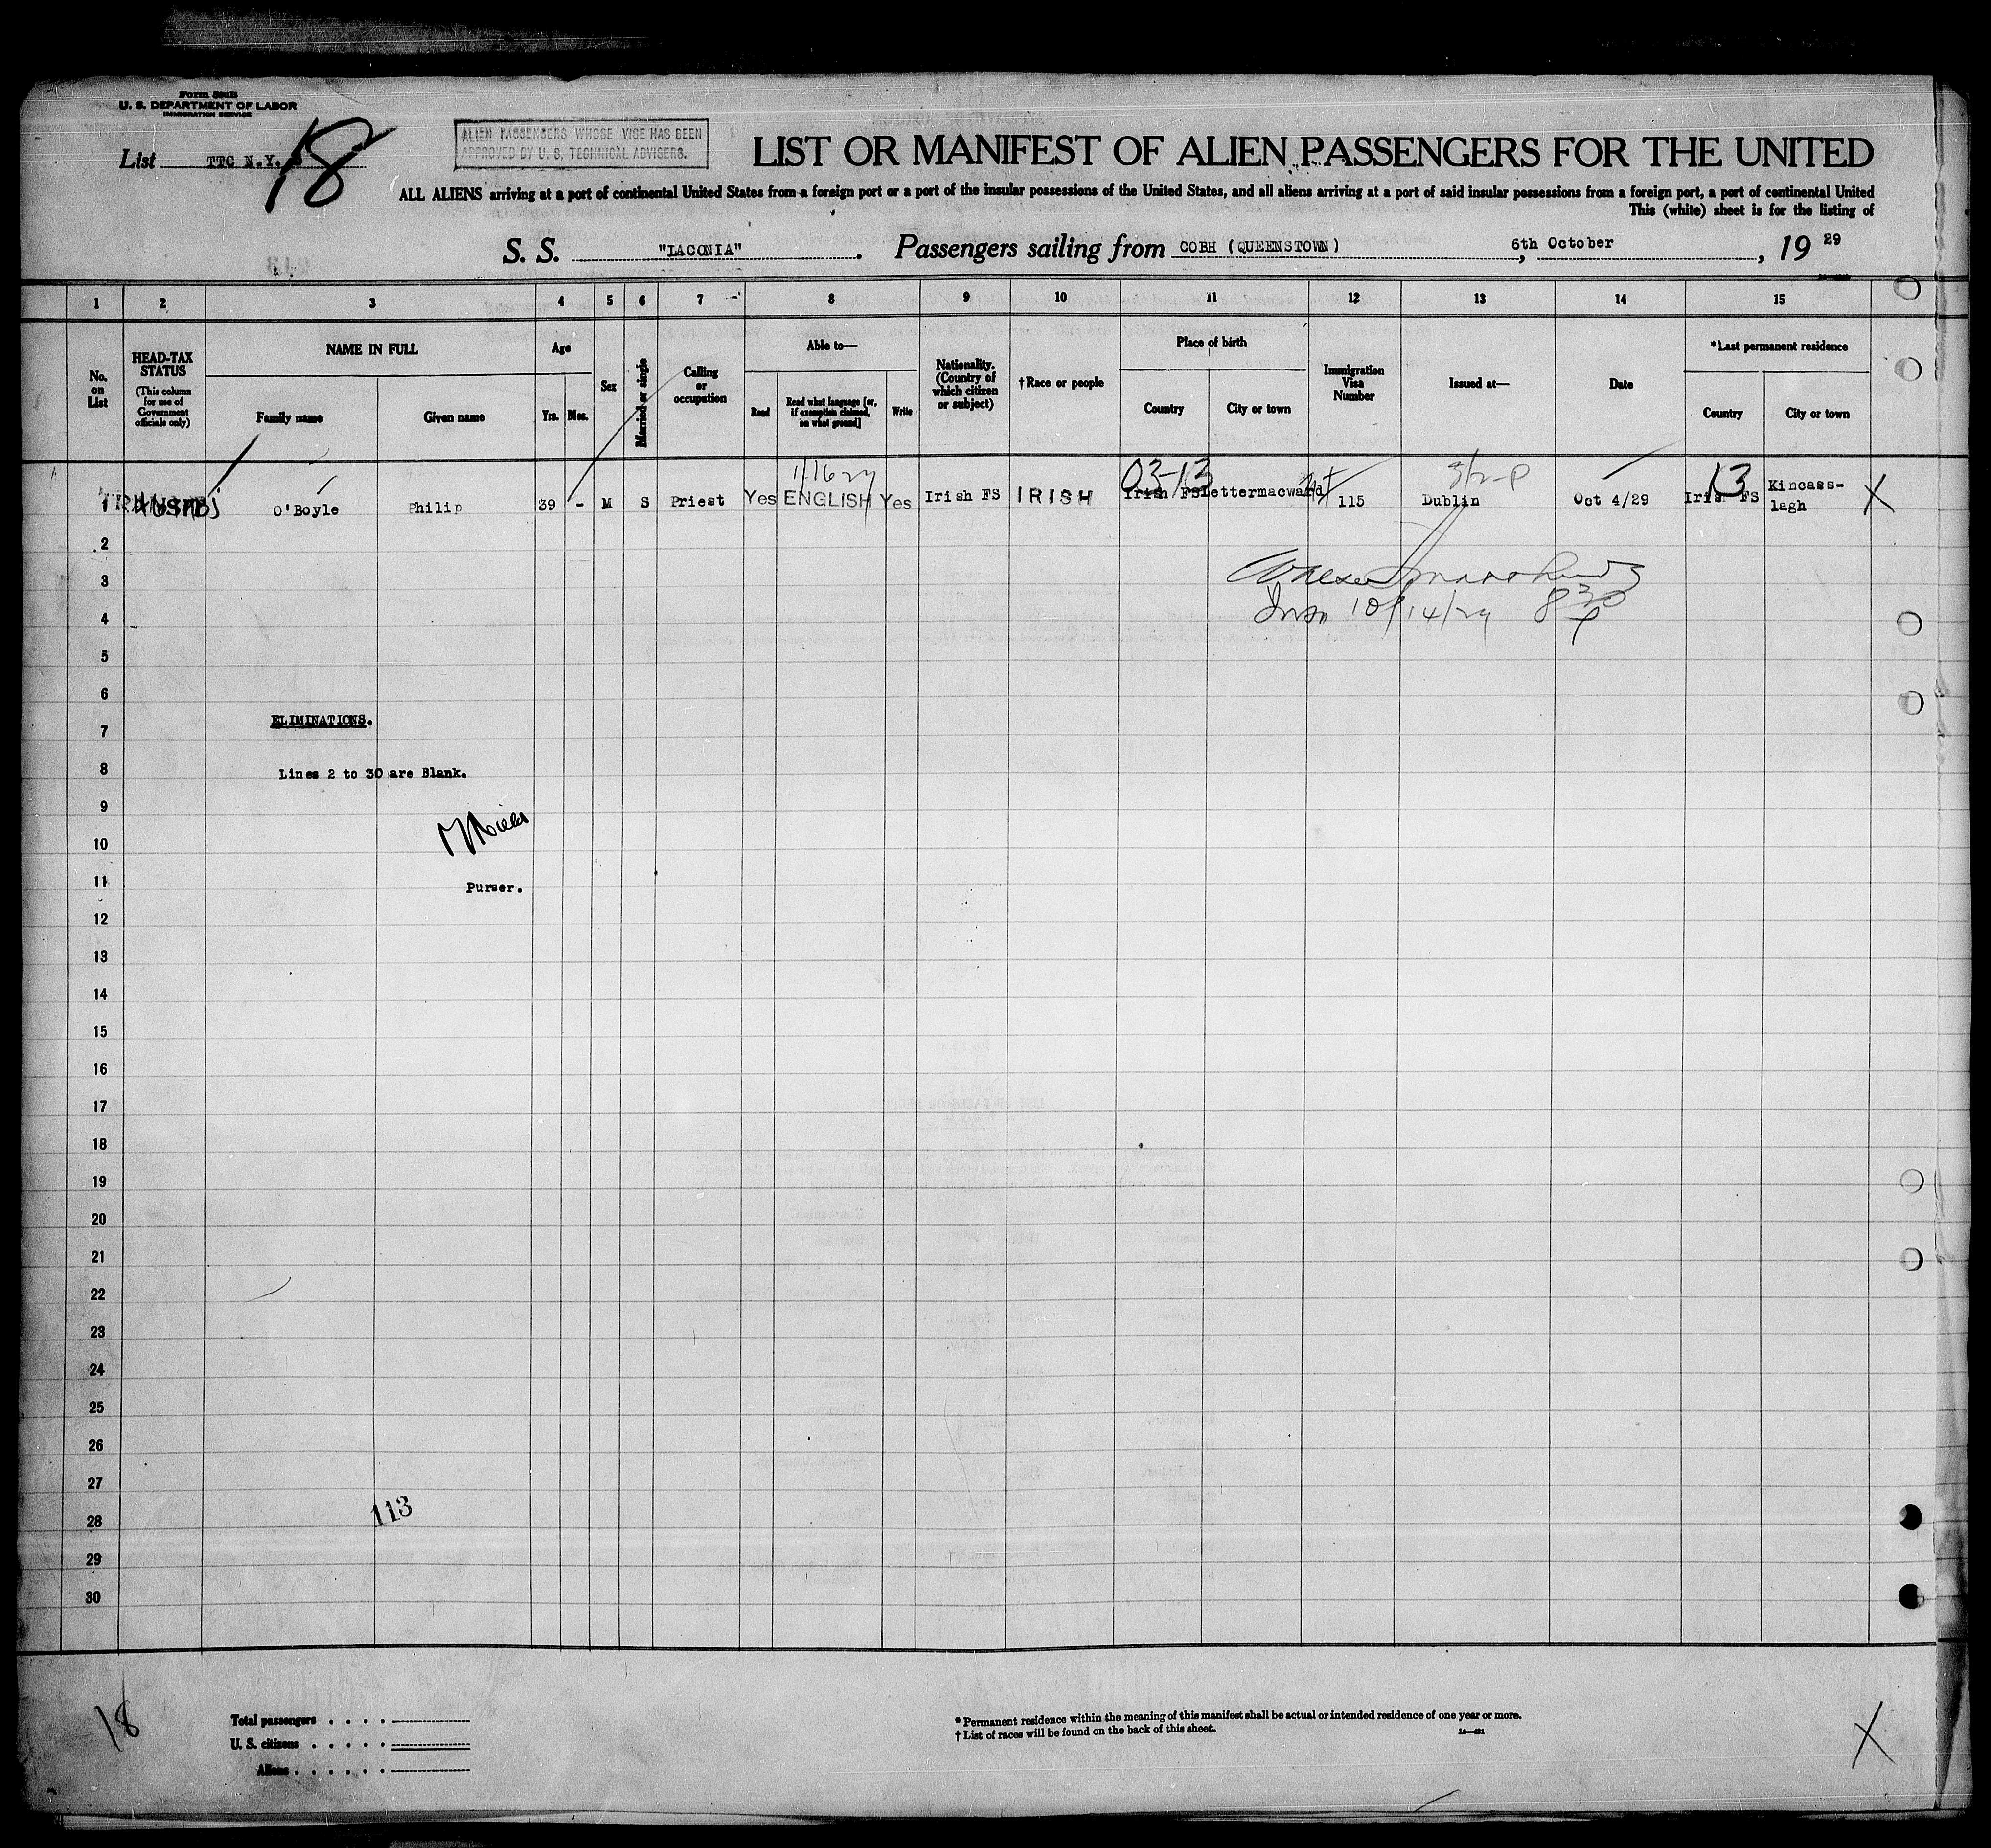 Form 500B
U. S. DEPARTMENT OF LABOR
IMMIGRATION SERVICE
List TTC N.Y. 18
ALIEN PASSENGERS WHOSE VICE HAS BEEN
APPROVED BY U. S. TECHNICAL ADVISERS.
LIST OR MANIFEST OF ALIEN PASSENGERS FOR THE UNITED
ALL ALIENS arriving at a port of continental United States from a foreign port or a port of the insular possessions of the United States, and all aliens arriving at a port of said insular possessions from a foreign port, a port of continental United
This (white) sheet is for the listing of
S. S. "LACONIA". Passengers sailing from COBH (QUEENSTOWN), 6th October, 19 29
1 2 3 4 5 6 7 8 9 10 11 12 13 14 15
No. on List
HEAD-TAX STATUS
(This column for use of Government officials only)
NAME IN FULL
Family name
Given name
Age
Yrs.
Mos.
Sex
Married or single
Calling or occupation
Able to—
Read
Read what language [or, if exemption claimed, on what ground]
Write
Nationality. (Country of which citizen or subject)
†Race or people
Place of birth
Country
City or town
Immigration Visa Number
Issued at—
Date
*Last permanent residence
Country
City or town
03-13
13
1 O'Boyle Philip 39 - M S Priest Yes ENGLISH Yes Irish FS IRISH Irish FS Lettermacward 115 Dublin Oct 4/29 Irish FS Kincass-
lagh X
2
3
10/14/29 8 30
4
5
6
ELIMINATIONS.
7
8 Lines 2 to 30 are Blank.
9
10
11 Purser.
12
13
14
15
16
17
18
19
20
21
22
23
24
25
26
27
113
28
29
30
18
Total passengers
U. S. citizens
Aliens
* Permanent residence within the meaning of this manifest shall be actual or intended residence of one year or more.
† List of races will be found on the back of this sheet.
X